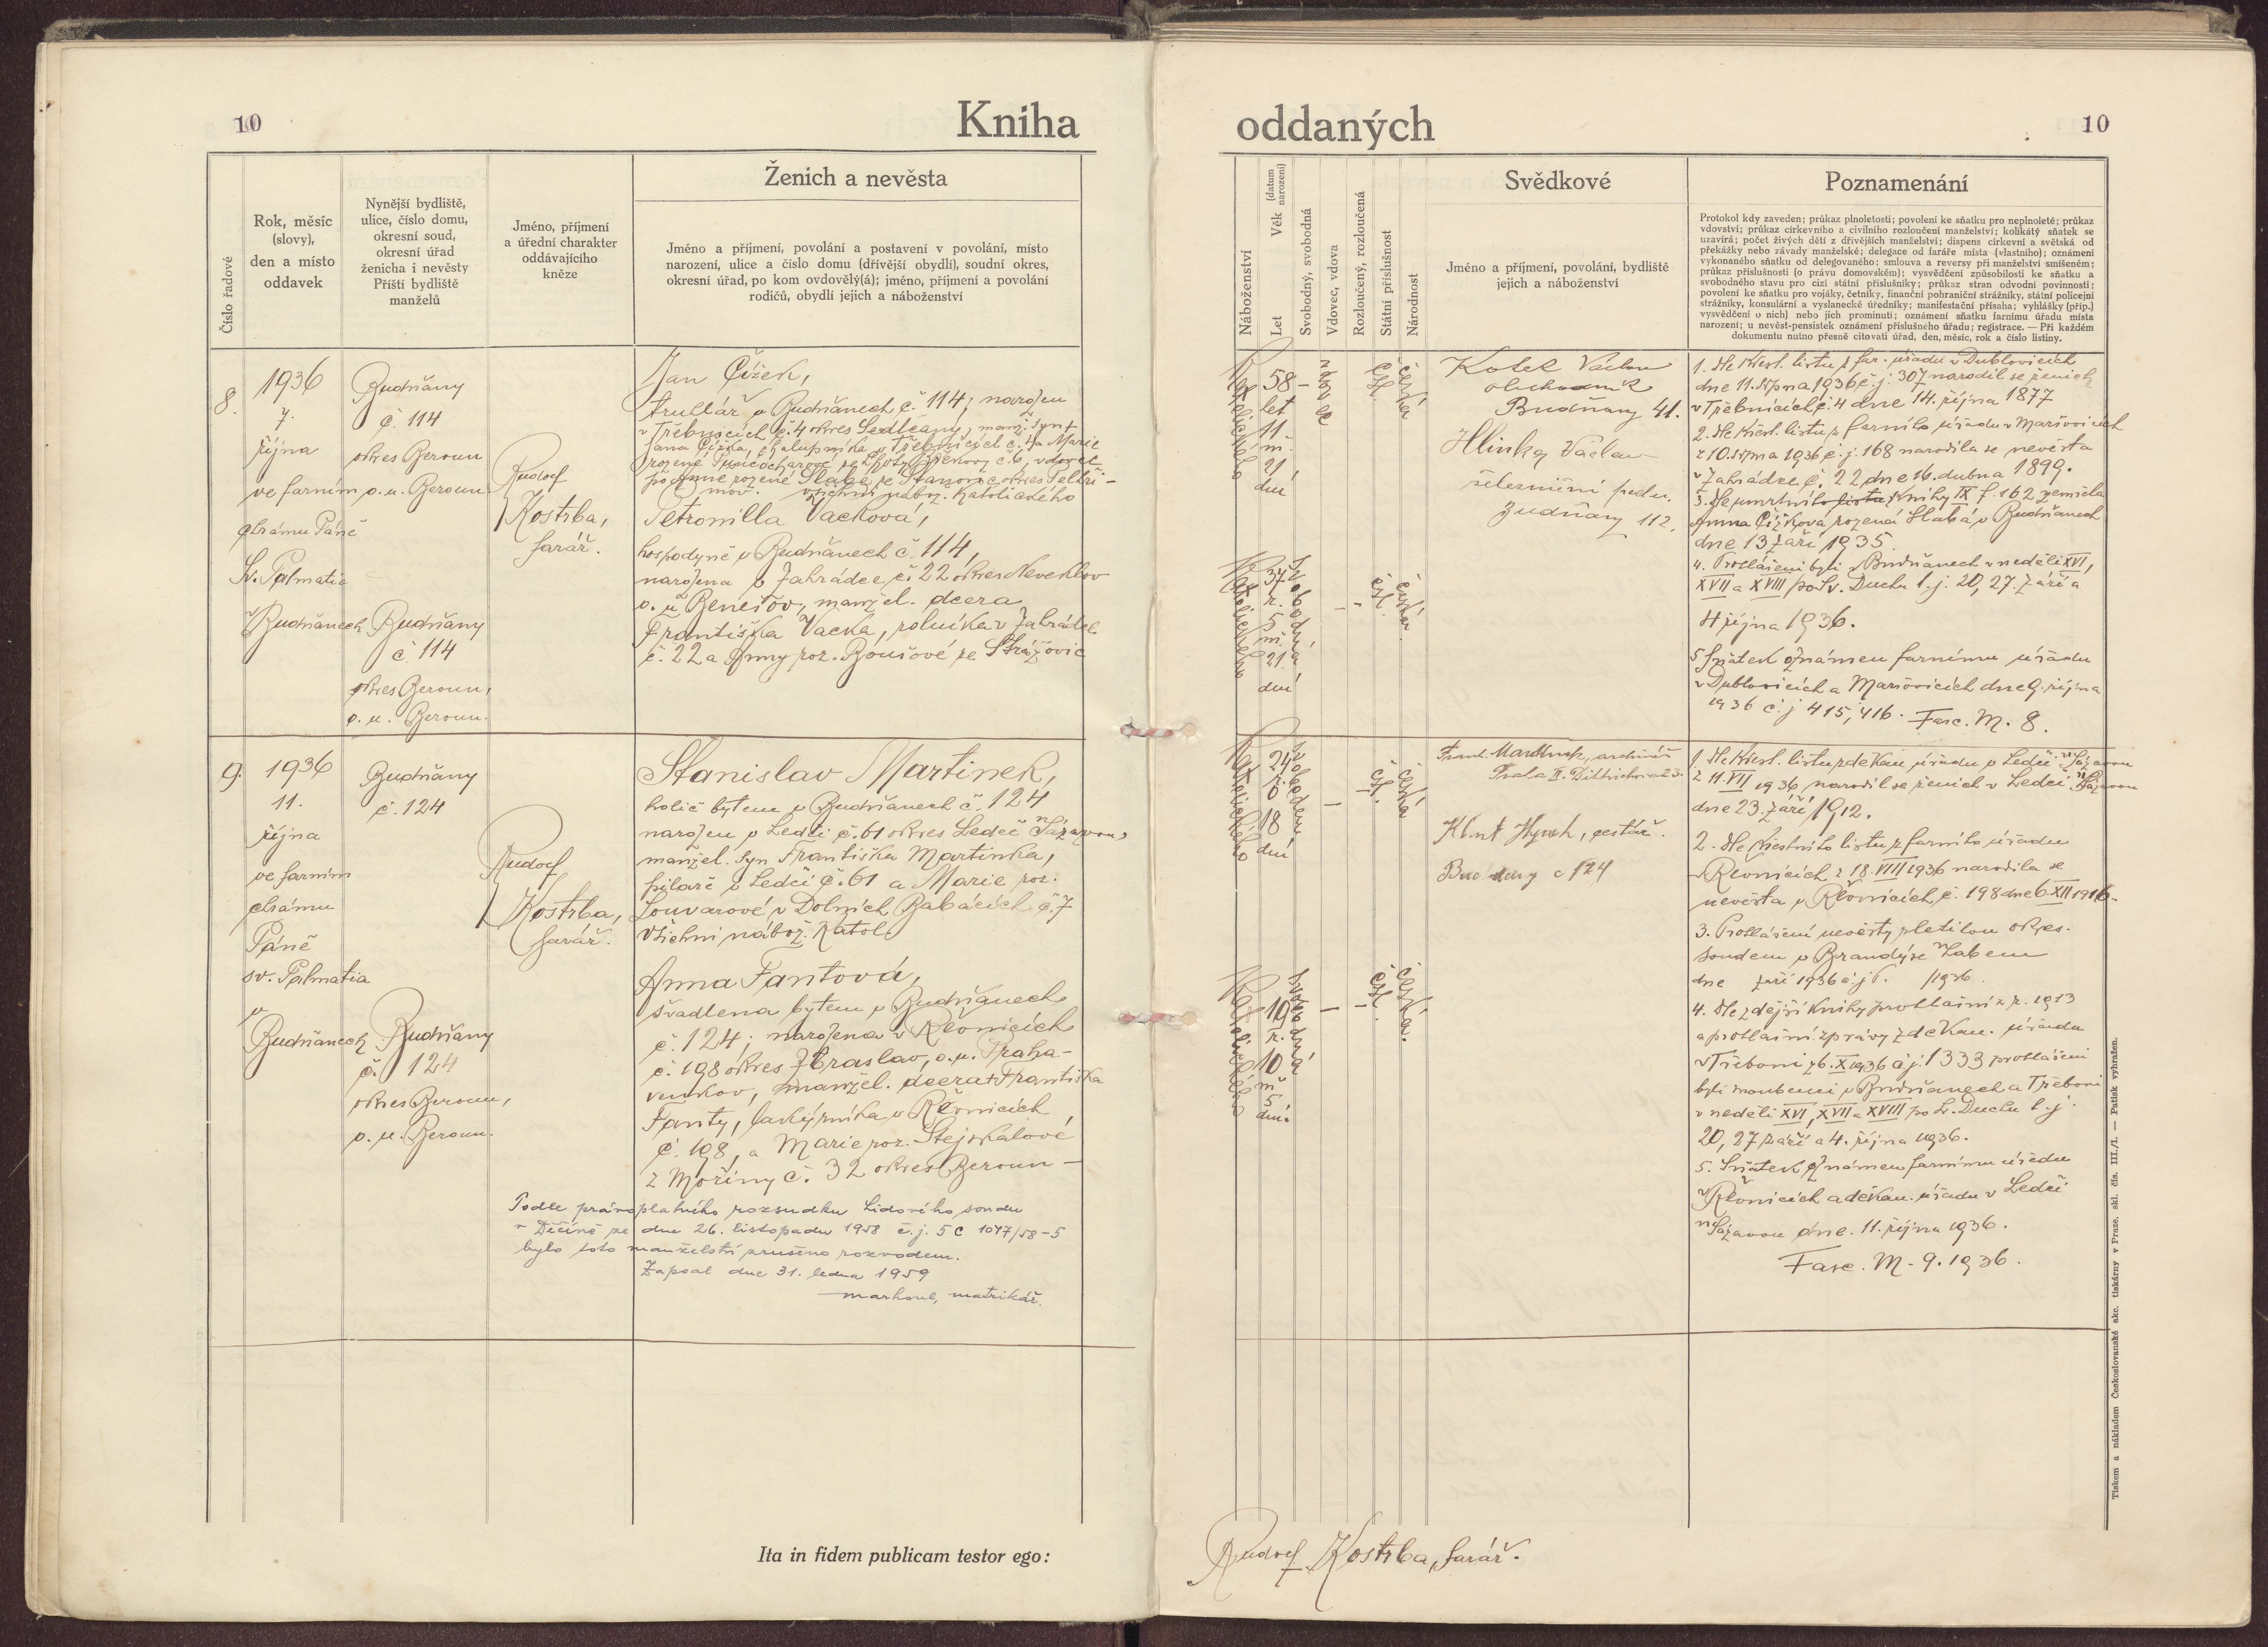 10
Kniha
Číslo řadové
Rok, měsíc
(slovy),
den a místo
oddavek
Nynější bydliště,
ulice, číslo domu,
okresní soud,
okresní úřad
ženicha i nevěsty
Příští bydliště
manželů
Jméno, příjmení
a úřední charakter
oddávajícího
kněze
Ženich a nevěsta
Jméno a příjmení, povolání a postavení v povolání, místo
narození, ulice a číslo domu (dřívější obydlí), soudní okres,
okresní úřad, po kom ovdovělý(á); jméno, příjmení a povolání
rodičů, obydlí jejich a náboženství
8.
1936
7.
října
ve farním
chrámu Páně
Sv. Palmatia
v Budňanech
Budňany
č. 114
okres Beroun
o. u. Beroun
Budňany
č. 114
okres Beroun,
o. u. Beroun.
Rudolf
Kostrba,
farář.
Jan Čížek,
truhlář v Budňanech č. 114, narozen
v Třebnicích č. 4 okres Sedlčany, manž. syn †
Jana Čížka, chalupníka v Třebnicích č. 4 a Marie
po Anně rozené Slabé
všichni nábož. katolického
Petronilla Vacková,
hospodyně v Budňanech č. 114,
narozena v Zahrádce č. 22 okres Neveklov
o. u. Benešov, manžel. dcera
Františka Vacka, rolníka v Zahrádce
č. 22 a Anny roz. Boušové ze Strážovic
9.
1936
11.
října
ve farním
chrámu
Páně
sv. Palmatia
v
Budňanech
Budňany
č. 124
Budňany
č. 124
okres Beroun,
o. u. Beroun.
Rudolf
Kostrba,
farář.
Stanislav Martinek,
holič bytem v Budňanech č. 124
narozen v Ledči č. 61 okres Ledeč n Sázavou,
manžel. syn Františka Martinka,
pilaře v Ledči č. 61 a Marie roz.
Louvarové, v Dolních Babácích č. 7
všichni nábož. katol.
Anna Fantová,
švadlena bytem v Budňanech
č. 124; narozena v Řevnicích
č. 198 okres Zbraslav, o. u. Praha-
venkov, manžel. dcera † Františka
Fanty, v Řevnicích
č. 198, a Marie roz. Stejskalové
z Mořiny č. 32 okres Beroun –
Podle právoplatného rozsudku Lidového soudu
v Děčíně ze dne 26. listopadu 1958 č. j. 5 C 1047/58-5
bylo toto manželství zrušeno rozvodem.
Zapsal dne 31. ledna 1959
matrikář.
Ita in fidem publicam testor ego:
oddaných
10
Náboženství
Let
Věk
(datum narození)
Svobodný, svobodná
Vdovec, vdova
Rozloučený, rozloučená
Státní příslušnost
Národnost
Svědkové
Jméno a příjmení, povolání, bydliště
jejich a náboženství
Poznamenání
Protokol kdy zaveden; průkaz plnoletosti; povolení ke sňatku pro neplnoleté; průkaz
vdovství; průkaz církevního a civilního rozloučení manželství; kolikátý sňatek se
uzavírá; počet živých dětí z dřívějších manželství; dispens církevní a světská od
překážky nebo závady manželské; delegace od faráře místa (vlastního); oznámení
vykonaného sňatku od delegovaného; smlouva a reversy při manželství smíšeném;
průkaz příslušnosti (o právu domovském); vysvědčení způsobilosti ke sňatku a
svobodného stavu pro cizí státní příslušníky; průkaz stran odvodní povinnosti;
povolení ke sňatku pro vojáky, četníky, finanční pohraniční strážníky, státní policejní
strážníky, konsulární a vyslanecké úředníky; manifestační přísaha; vyhlášky (příp.)
vysvědčení o nich) nebo jich prominutí; oznámení sňatku farnímu úřadu místa
narození; u nevěst-pensistek oznámení příslušného úřadu; registrace. — Při každém
dokumentu nutno přesně citovati úřad, den, měsíc, rok a číslo listiny.
Katolického
58
let
11
m.
21
dní
–
vdovec
čsl.
česká
Katolického
37
r.
5
m.
21.
dní
Svobodná
–
–
čsl.
česká
Kotek Václav
obchodník
Budňany 41.
Hlinka Václav
Budňany 112.
1. Dle křest. listu z far. úřadu v Dublovicích
dne 11. srpna 1936 č. j. 307 narodil se ženich
v Třebnicích č. 4 dne 14. října 1877
2. Dle křest. listu z farního úřadu v Maršovicích
z 10. srpna 1936 č. j. 168 narodila se nevěsta
v Zahrádce č. 22 dne 16. dubna 1899.
3. Dle úmrtního listu knihy IX f. 162 zemřela
Anna Čížková rozená Slabá v Budňanech
dne 13 září 1935.
4. Prohlášeni byli v Budňanech v neděli XVI,
XVII a XVIII po Sv. Duchu t. j. 20, 27. září a
4 října 1936.
5 Sňatek oznámen farnímu úřadu
v Dublovicích a Maršovicích dne 9. října
1936 č. j 415, 416. Fasc. M. 8.
Katolického
24
r.
0
18
dní
Svoboden
–
–
čsl.
česká
Katolického
19
r.
10
m
5
dní.
Svobodná
–
–
čsl.
česká.
archivář
Praha II. Dittrichova 23.
Hynek, cestář.
Budňany č 124
1. Dle křest. listu z děkan. úřadu v Ledči n Sázavou
z 11. VII 1936 narodil se ženich v Ledči n Sázavou
dne 23. září 1912.
2. Dle křestního listu z farního úřadu
v Řevnicích z 18. VIII 1936 narodila se
nevěsta v Řevnicích č. 198 dne 6. XII 1916.
3. Prohlášení nevěsty pletilou okres.
soudem v Brandýse n Labem
dne září 1936 č. j P. /1936
4. Dle zdejší knihy prohlášní z r. 1913
a prohlašní zprávy z děkan. úřadu
v Třeboni z 6. X 1936 č. j. 1333 prohlášeni
byli snoubenci v Budňanech a Třeboni
v neděli XVI, XVII a XVIII po sv. Duchu t. j.
20, 27 září a 4. října 1936.
5. Sňatek oznámen farnímu úřadu
v Řevnicích a děkan. úřadu v Ledči
n Sázavou dne. 11. října 1936.
Fasc. M. 9. 1936.
Rudolf Kostrba, farář.
Tiskem a nákladem Československé akc. tiskárny v Praze, skl. čís. III./1. — Patisk vyhražen.